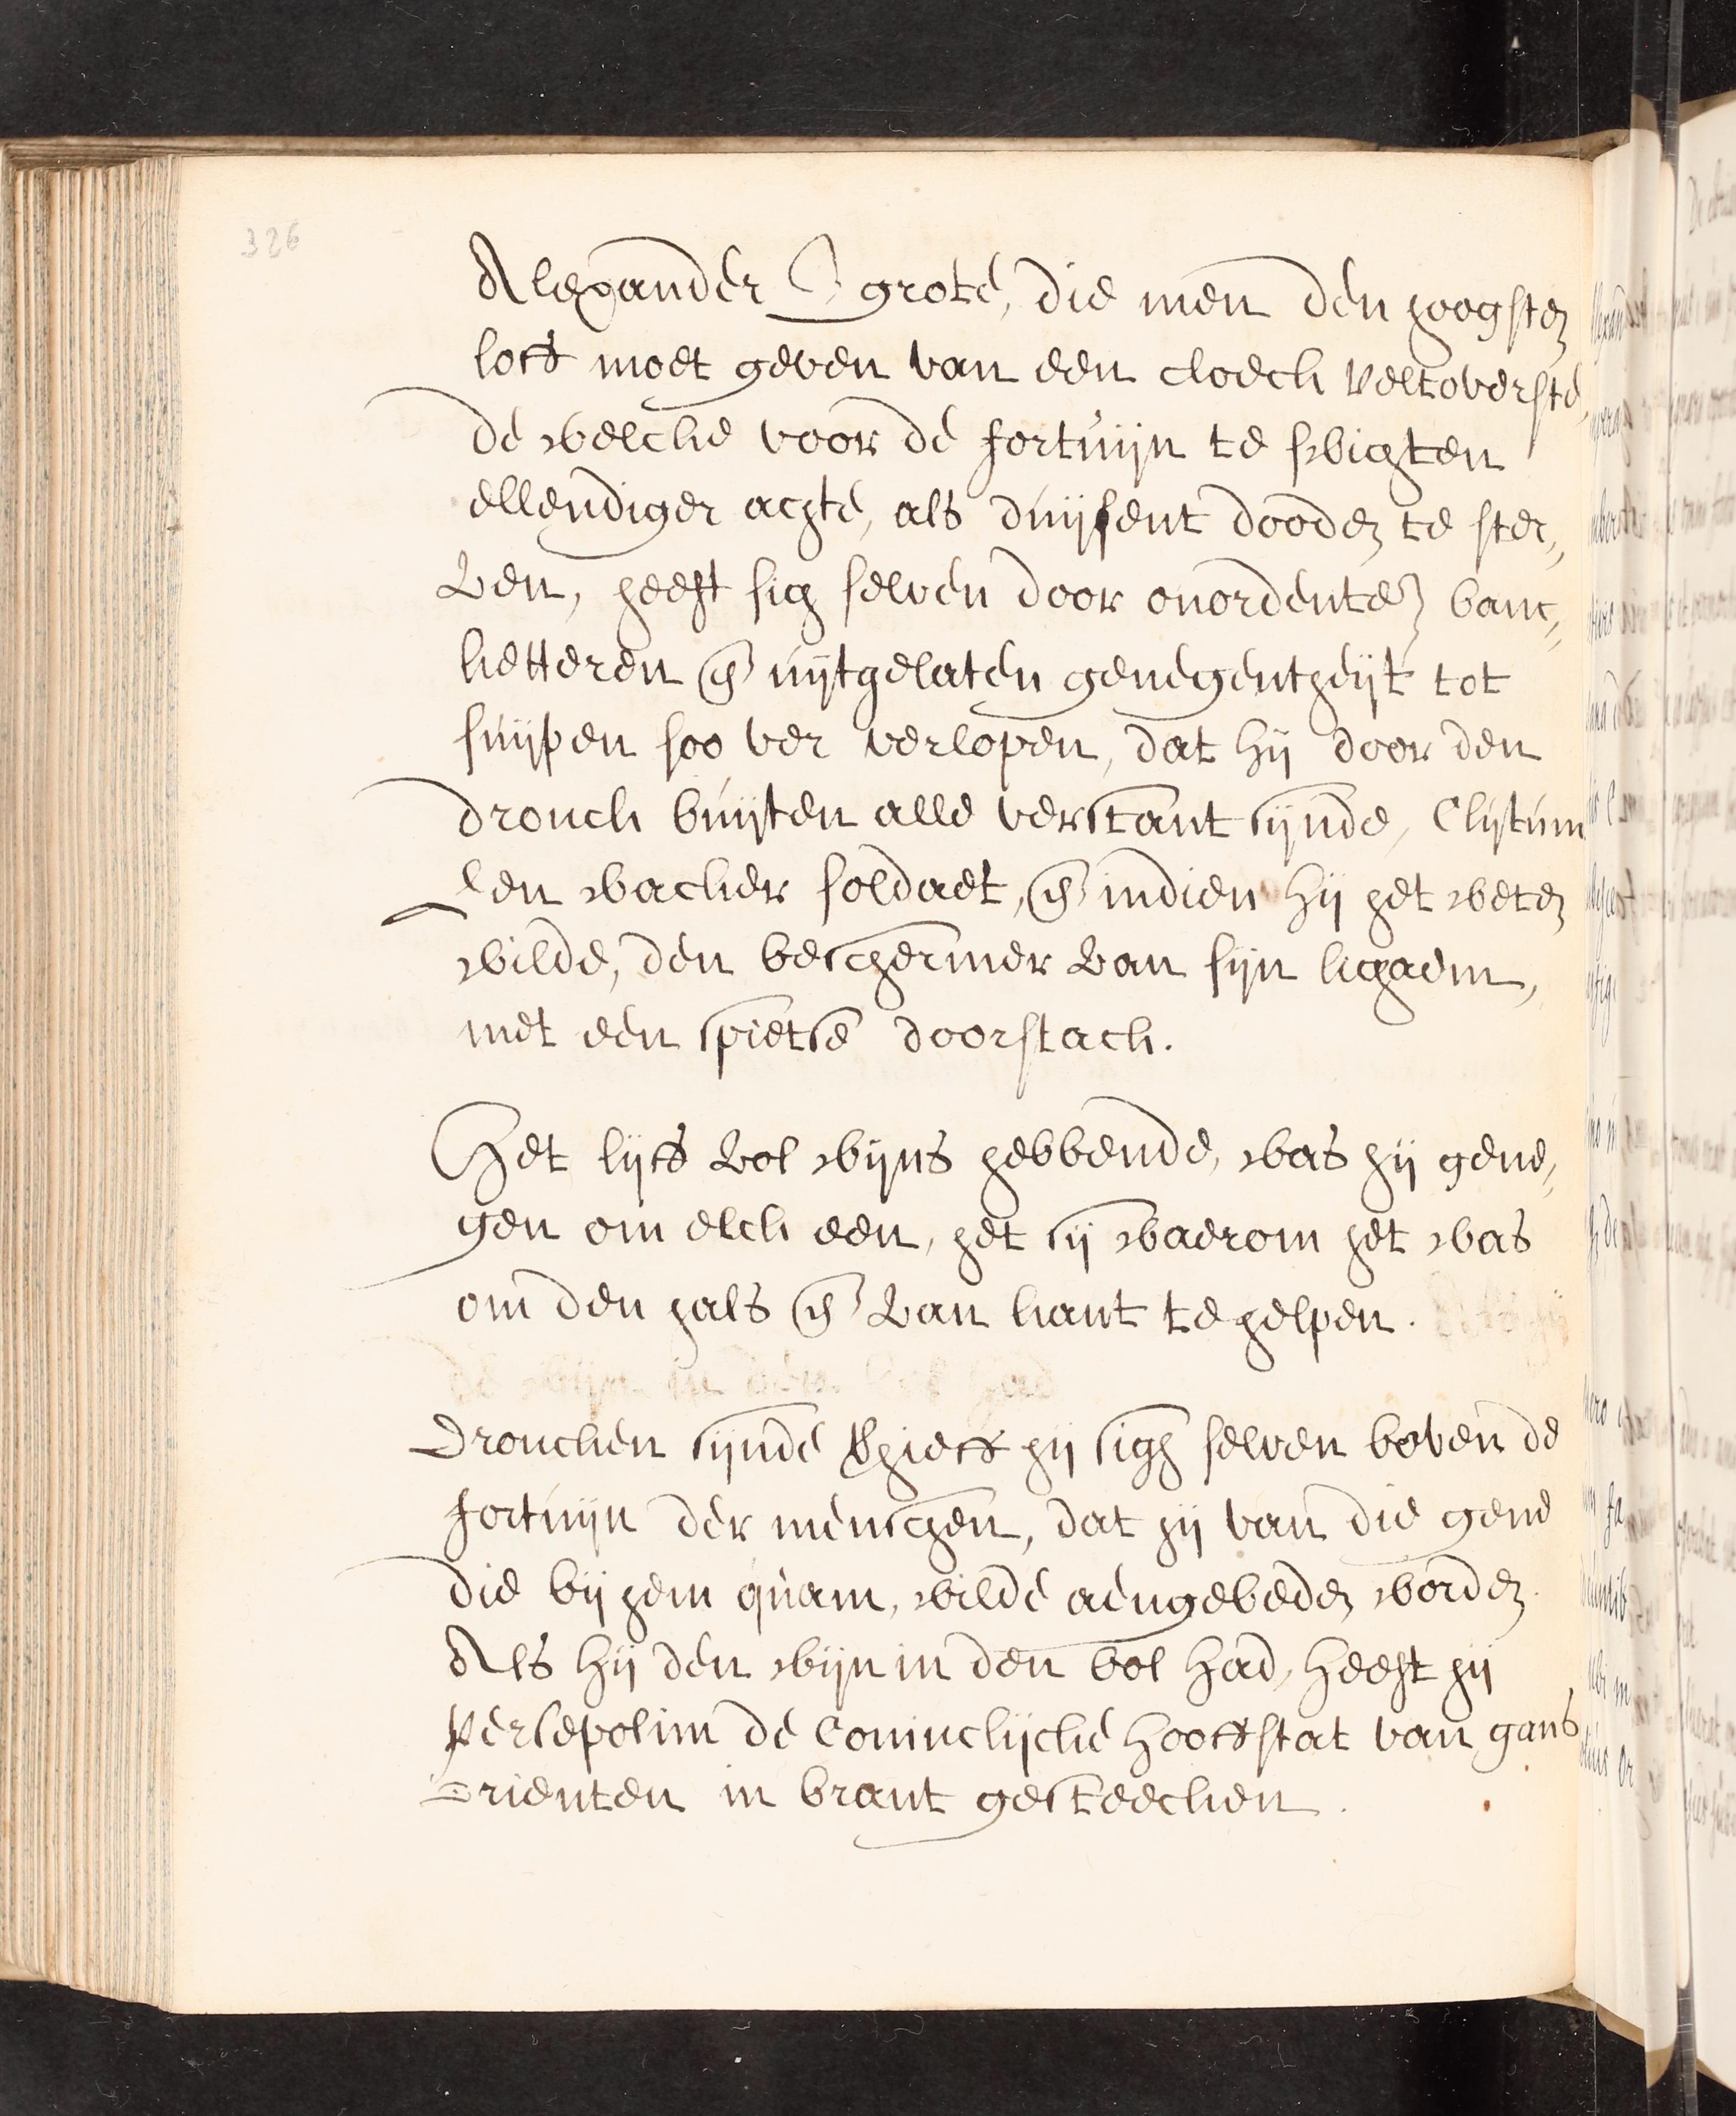 326
Alexander d grote, die men den hoogsten
loff moet geven van een cloeck veltoverste,
de welcke voor de fortuijn te swichten
ellendiger achte, als duijsent dooden te ster„
ven, heeft sich selven door onordenteN banc„
ketteren en uijtgelaten genegentheijt tot
suijpen soo ver verlopen, dat hij door den
dronck buijten alle verstant sijnde, Clijtum
een wacker soldaet, en indien hij het weten
wilde, den beschermer van sijn lichaem,
met een spietse doorstack.
Het lijff vol wijns hebbende, was hij gene„
gen om elck een, het sij waerom het was
om den hals en van kant te helpen.
Droncken sijnde verhieff hij sigh selven boven de
fortuijn der menschen, dat hij van die gene
die bij hem quam, wilde aengebeden worden.
Als hij den wijn in den bol had, heeft hij
Persepolim de Conincklijcke hooffstat van gans
Orienten in brant gesteecken.